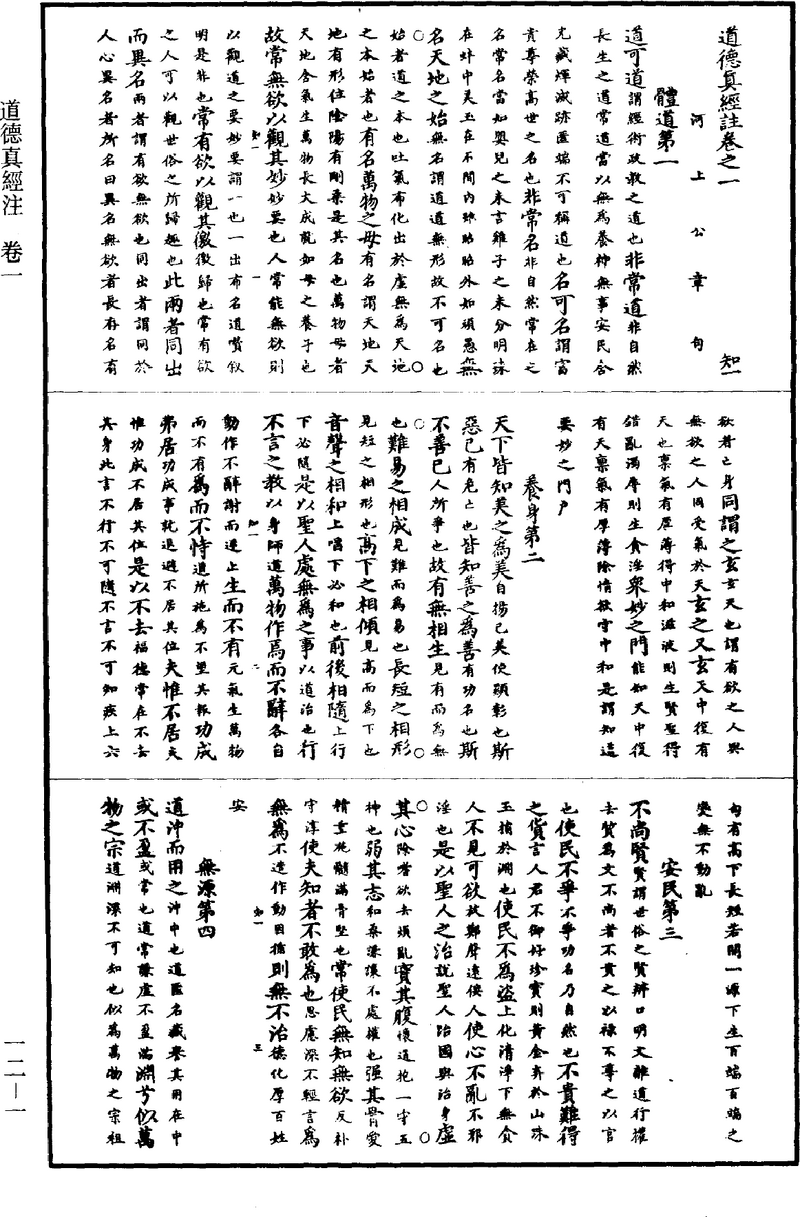 道德真經註卷之一　知一
河上公章句
體道第一
道可道謂經術政教之道也非常道非自然
長生之道常道當以無為養神無事安民含
光藏暉滅跡匿端不可稱道也名可名謂富
貴尊榮高世之名也非常名非自然常在之
名常名當如嬰兒之未言雞子之未分明珠
在蚌中美玉在石間內雖昭昭外如頑愚無
名天地之始無名謂道道無形故不可名也
始者道之本也吐氣布化出於虛無為天地
之本始者也有名萬物之母有名謂天地天
地有形位陰陽有剛柔是其名也萬物母者
天地含氣生萬物長大成就如母之養子也
故常無欲以觀其妙妙要也人常能無欲則
知一　一
以觀道之要妙要謂一也一出布名道讚叙
明是非也常有欲以觀其徼徼歸也常有欲
之人可以觀世俗之所歸趣也此兩者同出
而異名兩者謂有欲無欲也同出者謂同於
人心異名者所名曰異名無欲者長存名有
欲者亡身同謂之玄玄天也謂有欲之人與
無欲之人同受氣於天玄之又玄天中復有
天也稟氣有厚薄得中和滋液則生賢聖得
錯亂濁辱則生貪淫衆妙之門能知天中復
有天稟氣有厚薄除情欲守中和是謂知道
要妙之門戶
養身第二
天下皆知美之為美自揚己美使顯彰也斯
惡已有危亡也皆知善之為善有功名也斯
不善已人所爭也故有無相生見有而為無
也難易之相成見難而為易也長短之相形
見短之相形也高下之相傾見高而為下也
音聲之相和上唱下必和也前後相隨上行
下必隨是以聖人處無為之事以道治也行
不言之教以身師道萬物作焉而不辭各自
知一　二
動作不辭謝而逆止生而不有元氣生萬物
而不有為而不恃道所施為不望其報功成
弗居功成事就退避不居其位夫惟不居夫
惟功成不居其位是以不去福德常在不去
其身此言不行不可隨不言不可知疾上六
句有高下長短若開一源下生百端百端之
變無不動亂
安民第三
不尚賢賢謂世俗之賢辯口明文離道行權
去質為文不尚者不貴之以祿不尊之以官
也使民不爭不爭功名乃自然也不貴難得
之貨言人君不御好珍寶則黃金弃於山珠
玉捐於淵也使民不為盜上化清淨下無貪
人不見可欲放鄭聲遠佞人使心不亂不邪
淫也是以聖人之治說聖人治國與治身虛
其心除嗜欲去煩亂實其腹懷道抱一守五
神也弱其志和柔謙讓不處權也强其骨愛
精重施髓滿骨堅也常使民無知無欲反朴
守淳使夫知者不敢為也思慮深不輕言為
無為不造作動因循則無不治德化厚百姓
知一　三
安
無源第四
道沖而用之沖中也道匿名藏譽其用在中
或不盈或常也道常謙虛不盈滿淵兮似萬
物之宗道淵深不可知也似為萬物之宗祖
道德真經注　卷一
一二—一